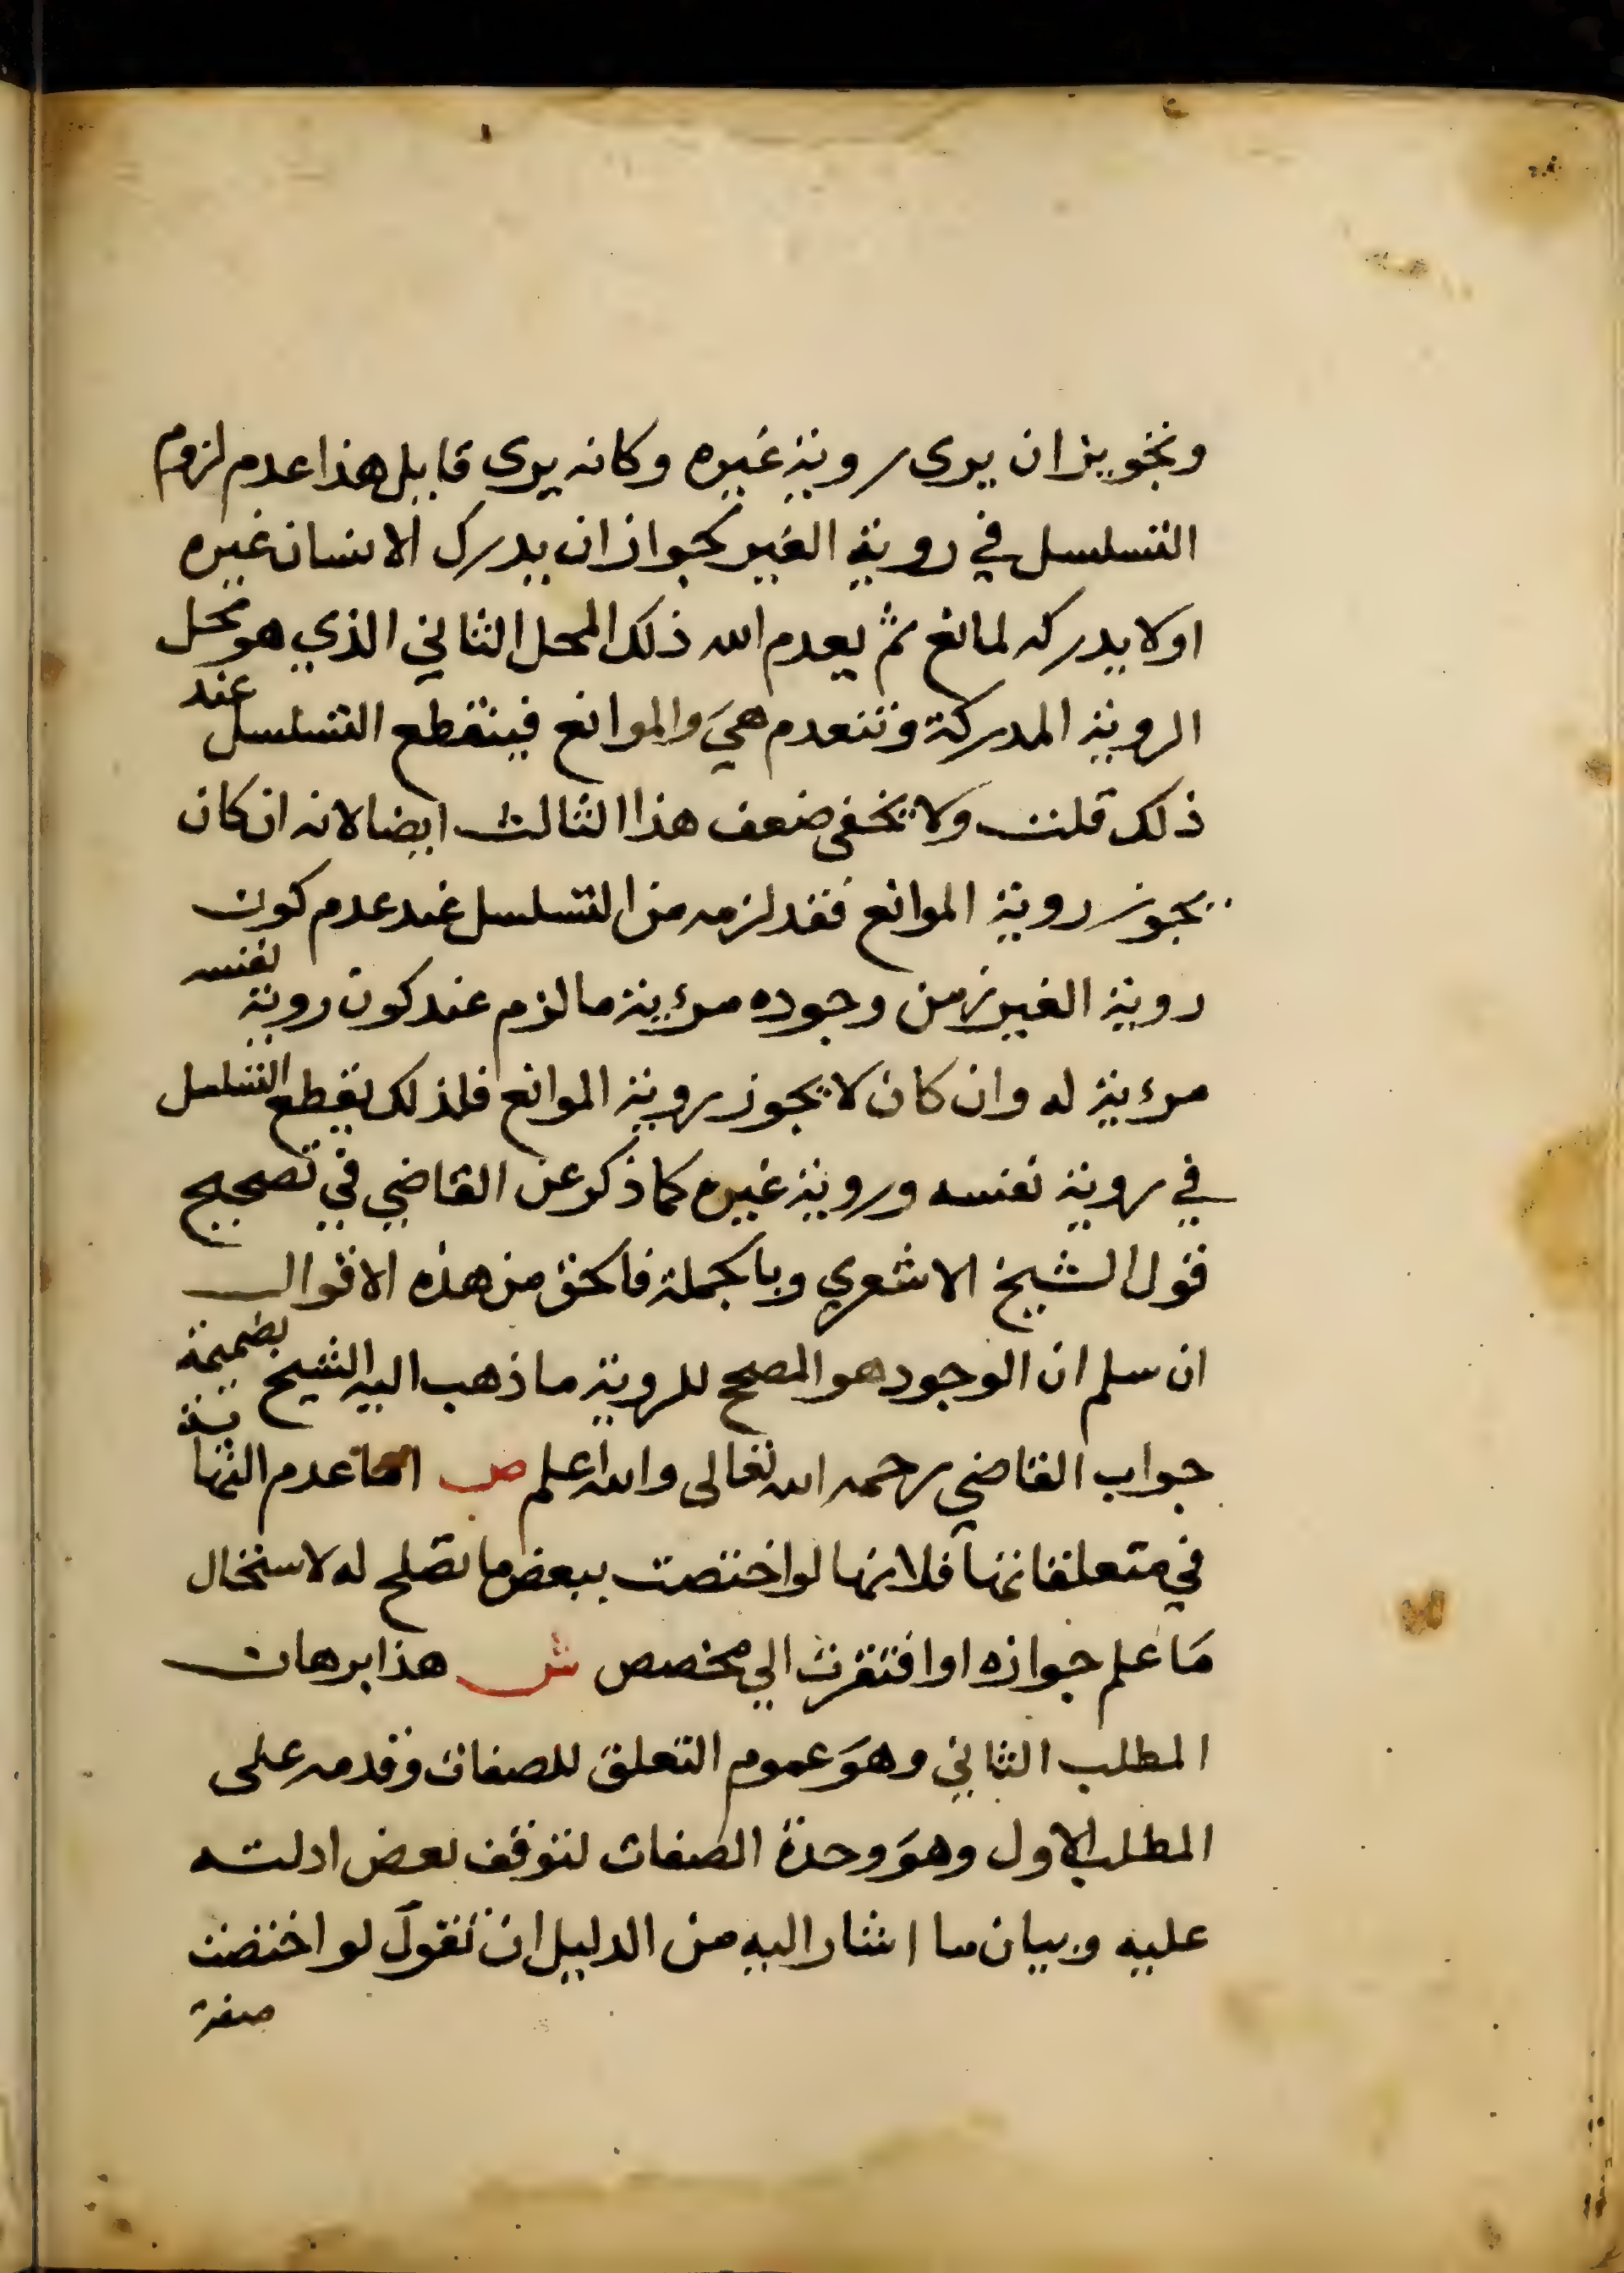 وتجويز ان يرى روية غيره وكانه يرى قايل هذا عدم لزوم
التسلسل في روية الغير لجواز ان يدرك الانسان غيره
اولا يدركه لمانع ثم يعدم الله ذلك المحل الثاني الذي هو محل
الروية المدركة وتنعدم هي والموانع فينقطع التسلسل عند
ذلك قلت ولا يخفى ضعف هذا الثالث ايضا لانه ان كان
يجوز روية الموانع فقد لزمه من التسلسل عند عدم كون
روية الغير من وجوده مرءية ما لزم عند كون روية نفسه
مرءية له وان كان لا يجوز روية الموانع فلذلك يقطع التسلسل
في روية نفسه وروية غيره كما ذكر عن القاضي في تصحيح
قول الشيخ الاشعري وبالجملة فالحق من هذه الاقوال
ان سلم ان الوجود هو المصحح للروية ما ذهب اليه الشيخ بضميمة
جواب القاضي رحمه الله تعالى والله اعلم ص اما عدم النهاية
في متعلقاتها فلانها لو اختصت ببعض ما تصلح له لاستحال
ما علم جوازه او افتقرت الي مخصص ش هذا برهان
المطلب الثاني وهو عموم التعلق للصفات وقدمه على
المطلب الاول وهو وحدة الصفات لتوقف بعض ادلته
عليه وبيان ما اشار اليه من الدليل ان تقول لو اختصت
صفة